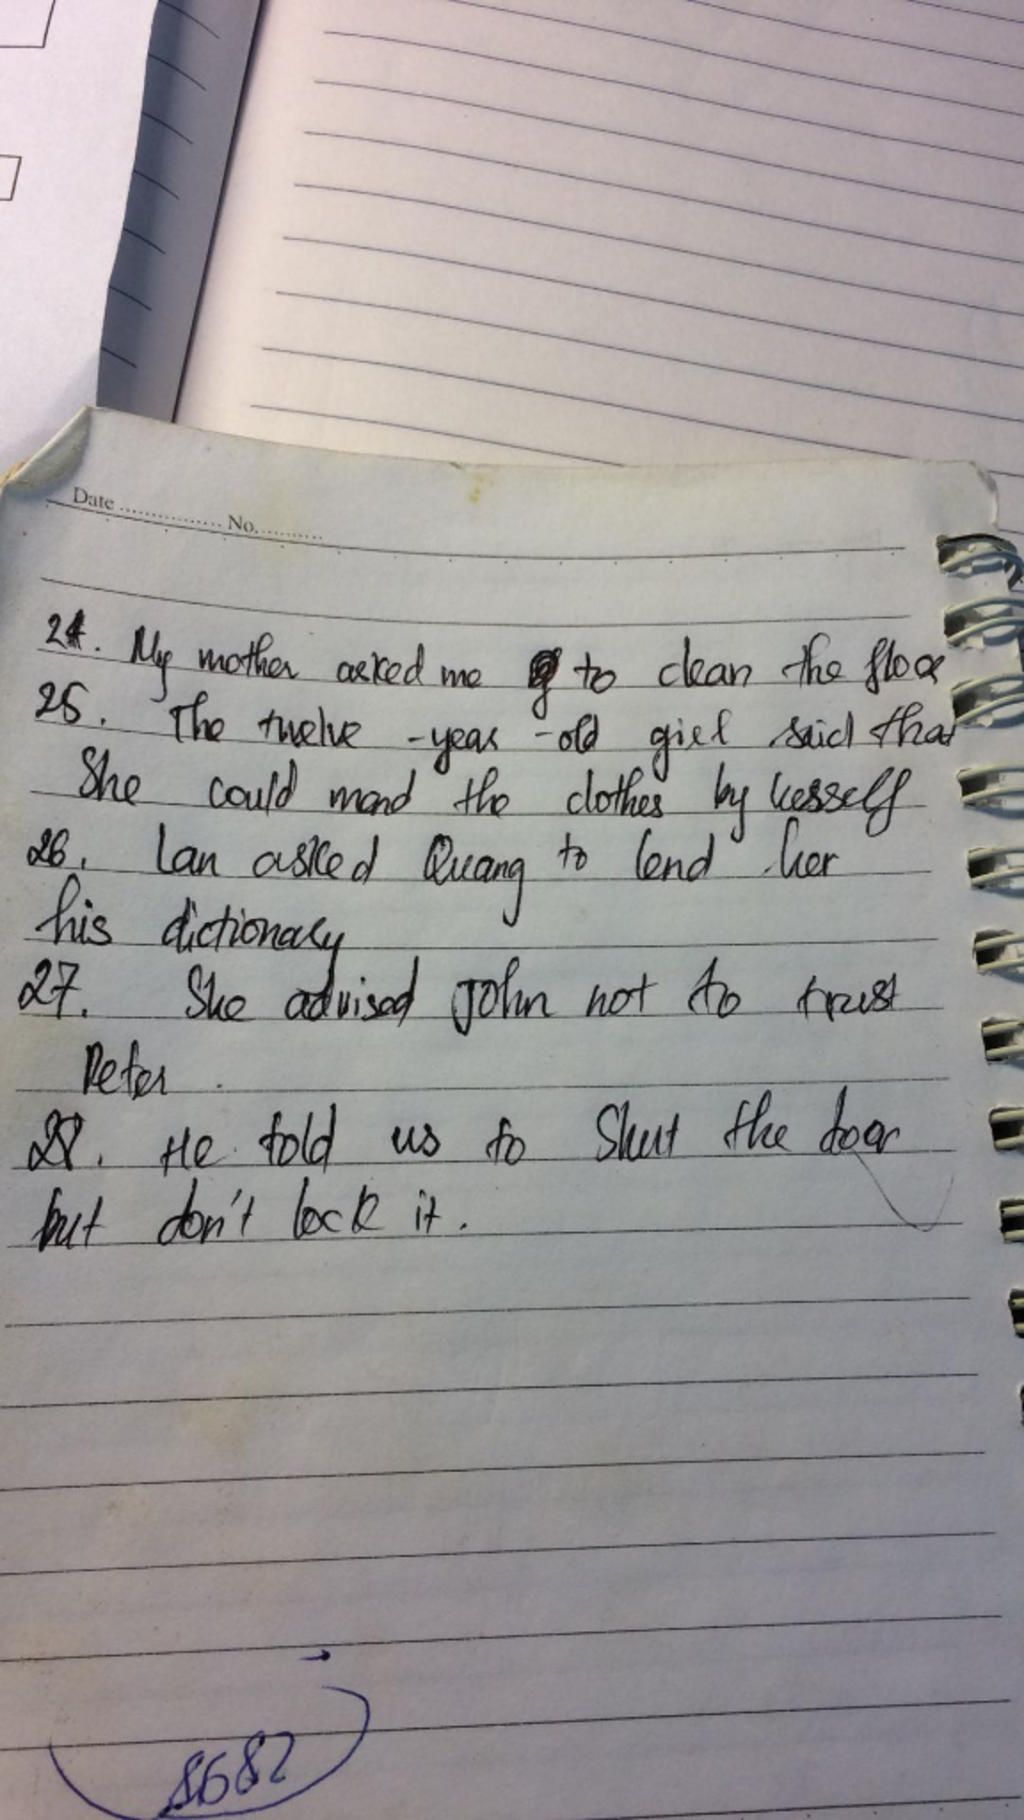 Date ............... No. ..........
24. My mother asked me to clean the floor
25. The twelve -year -old girl said that
She could mend the clothes by herself
26. Lan asked Quang to lend her
his dictionary
27. She advised John not to trust
Peter .
28. He told us to Shut the door
but don't lock it.
8682